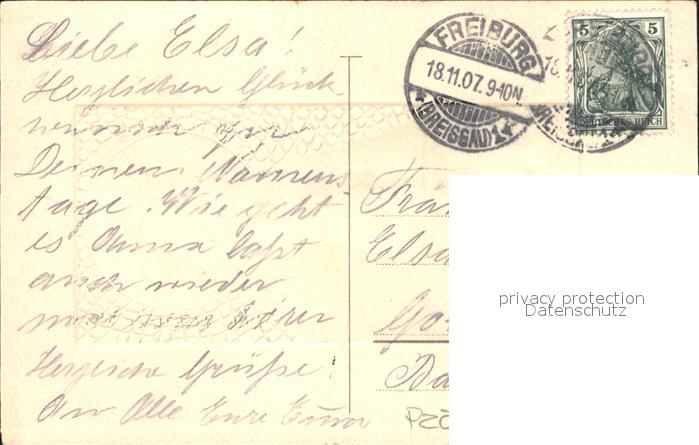 Liebe Elsa!
Herzlichen Glück-
wunsch zu
Deinem Namens
tage. Wie geht
es Anna laßt
auch wieder
mal hören
Herzliche Grüße!
An Alle Eure Emma
FREIBURG
18.11.07. 9-10N.
(BREISGAU) 1
5 5
DEUTSCHES REICH
Elsa
Go
Ba
privacy protection
Datenschutz